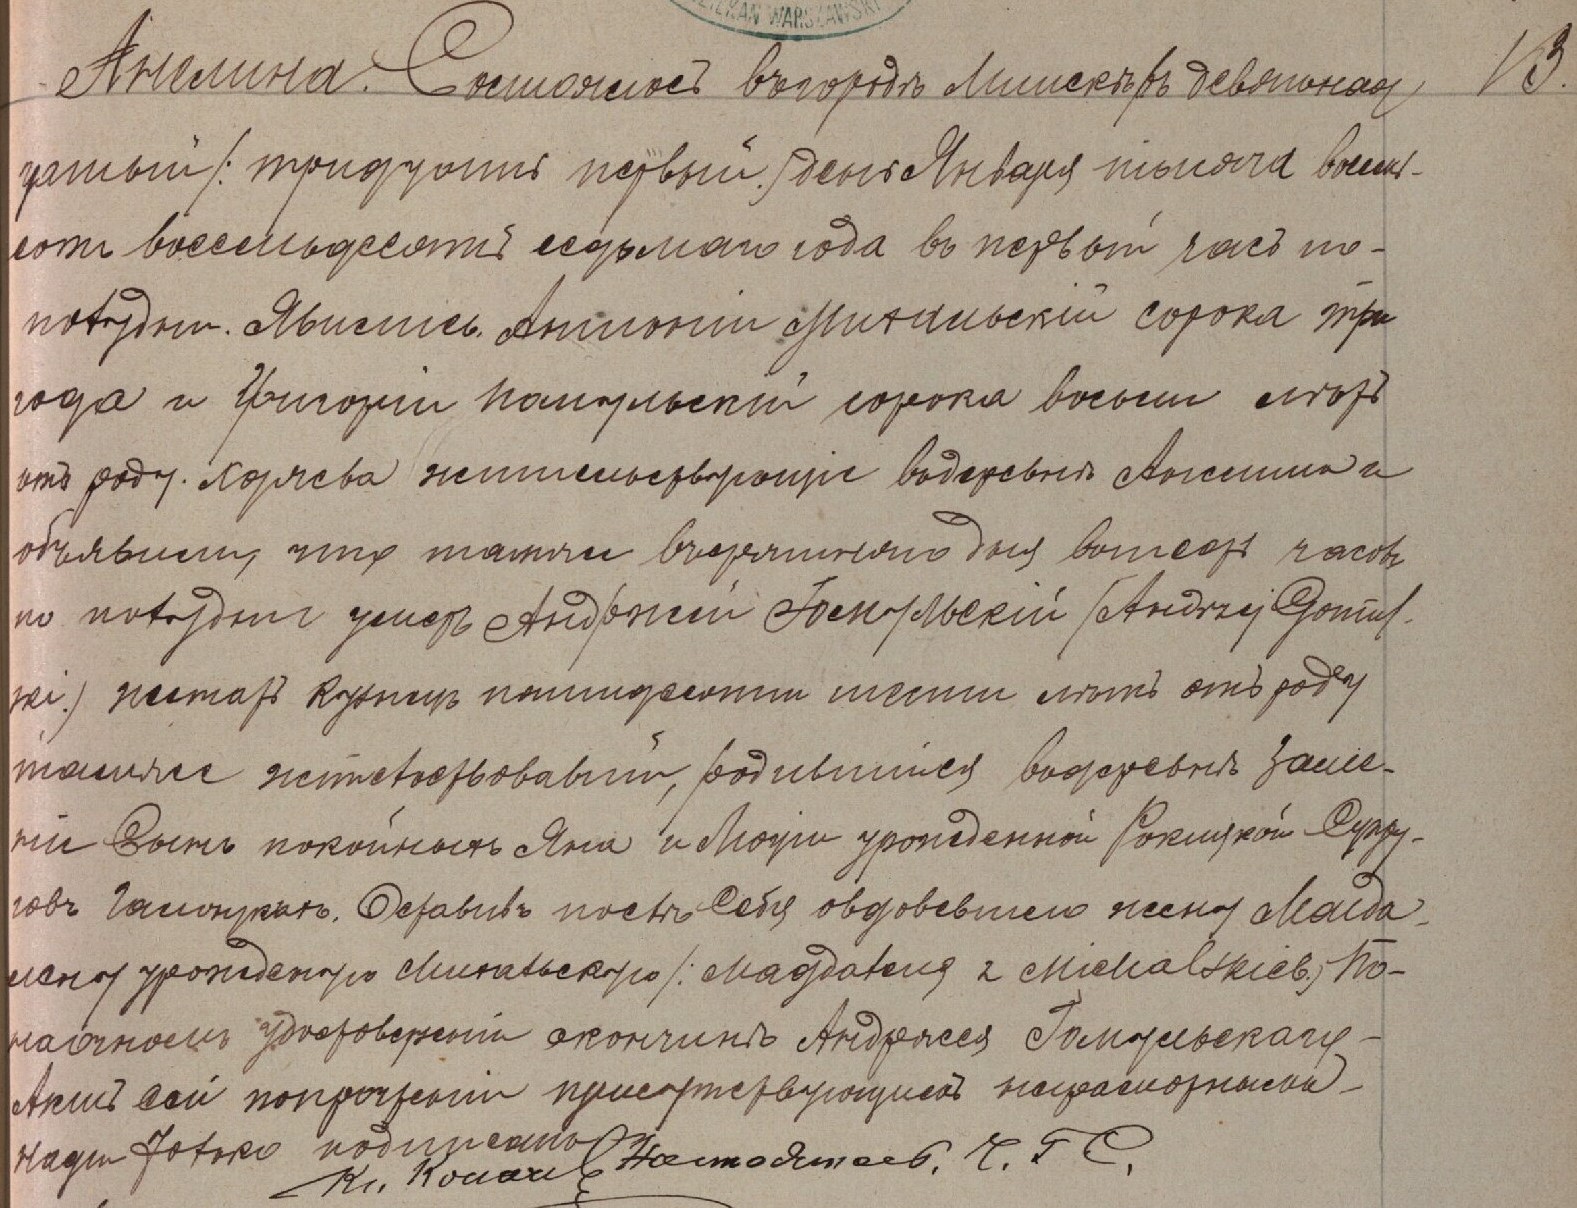 DZIEKAN WARSZAWSKI
Анелина. Состоялось въ городѣ Минскѣ въ девятнад
цатый /: тридцать первый :/ день Января тысяча восемь-
сотъ восемьдесятъ седьмаго года въ первый часъ по-
полудни. Явились Антоній Михальскій сорока три
года и Григорій Гомульскій сорока восьми лѣтъ
отъ роду жительствующіе въ деревнѣ Анелина и
объявили, что тамже вчерашняго дня въ шесть часовъ
по полудни умеръ Андржей Гомульскій /Andrzej Gomul-
ski./ женатъ кузнецъ пятидесяти шести лѣтъ отъ роду
тамже жительствовавшій, родившійся въ деревнѣ Заме-
ніе Сынъ покойныхъ Яна и урожденной Рокицкой Супру-
говъ. Оставивъ послѣ себя овдовевшею жену Магда-
лену урожденную Михальскую /: Magdalena z Michalskich :/ По-
наочномъ удостовереніи о кончинѣ Андржея Гомульскаго-
Актъ сей по прочтеніи присутствующимъ неграмотнымъ
нами только подписанъ
Кс. Настоятель. Ч. Г. С.
13.